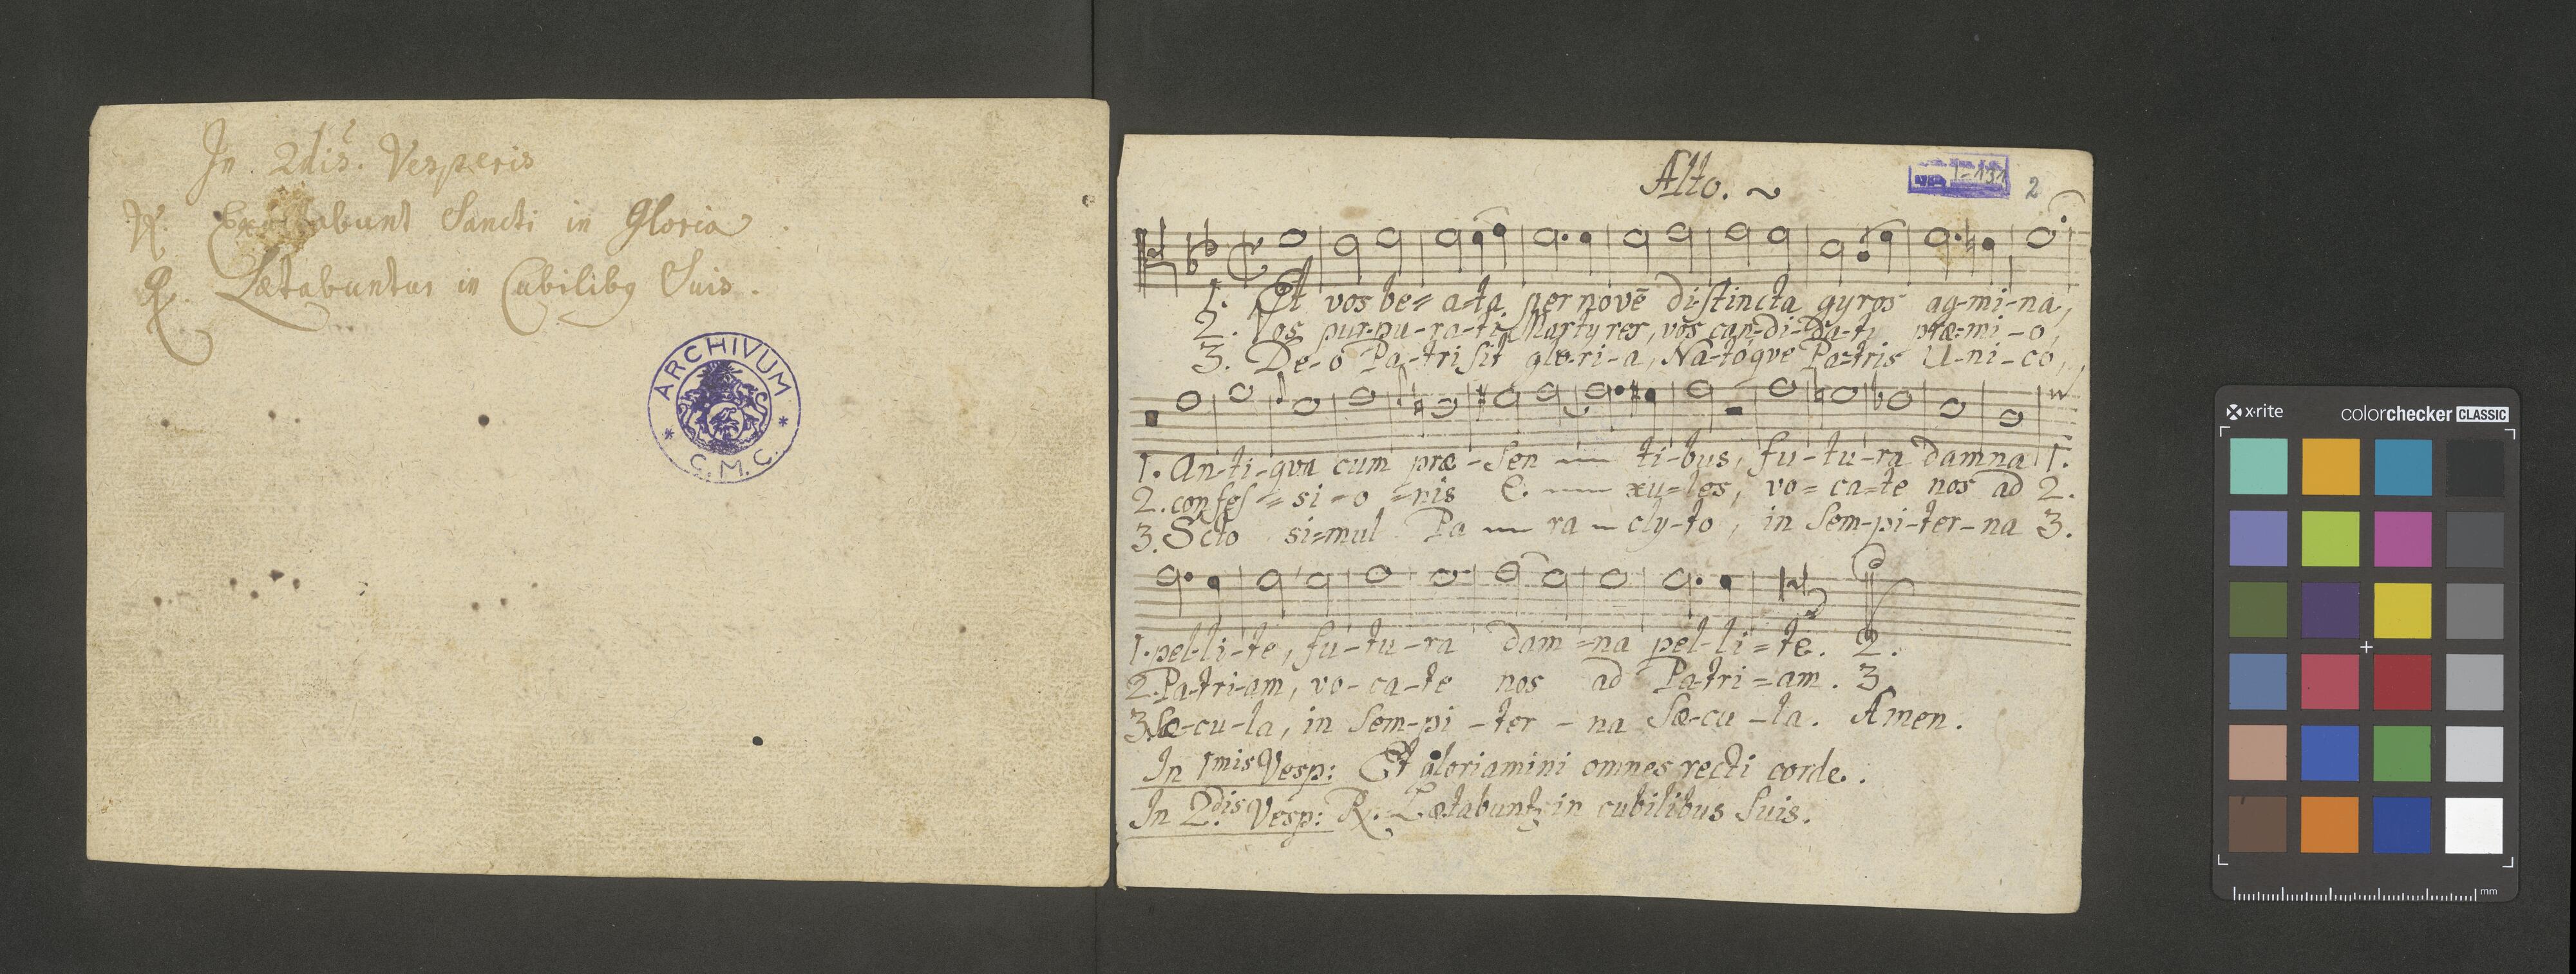 In 2dis. Vesperis
℣. Exultabunt Sancti in Gloria.
℟. Lætabuntur in Cubilibꝫ Suis.
ARCHIVUM
C. M. C.
Alto. ~
I-131
2
1. Et vos be= a-ta per novē di-stincta gyros ag-mi-na,
2. Vos pur-pu-ra-ti Martyres, vos can-di-da-ti præ-mi-o,
3. De-o Pa-tri sit glo-ri-a, Na-toqve Pa-tris U-ni-co,
1. An-ti-qva cum præ-sen — ti-bus, fu-tu-ra damna 1.
2. confes= si-o =nis e. — xu-les, vo= ca=te nos ad 2.
3. Scto si=mul Pa — ra — cly-to, in sem-pi-ter-na 3.
1. pel-li-te, fu-tu-ra dam =na pel-li=te. 2.
2. Pa-tri-am, vo-ca-te nos ad Pa-tri=am. 3
3. Sæ-cu-la, in sem-pi-ter-na Sæ-cu-la. Amen.
In 1mis Vesp: Et gloriamini omnes recti corde.
In 2dis Vesp: ℟. Lætabuntꝫ in cubilibus suis.
x-rite
colorchecker CLASSIC
mm